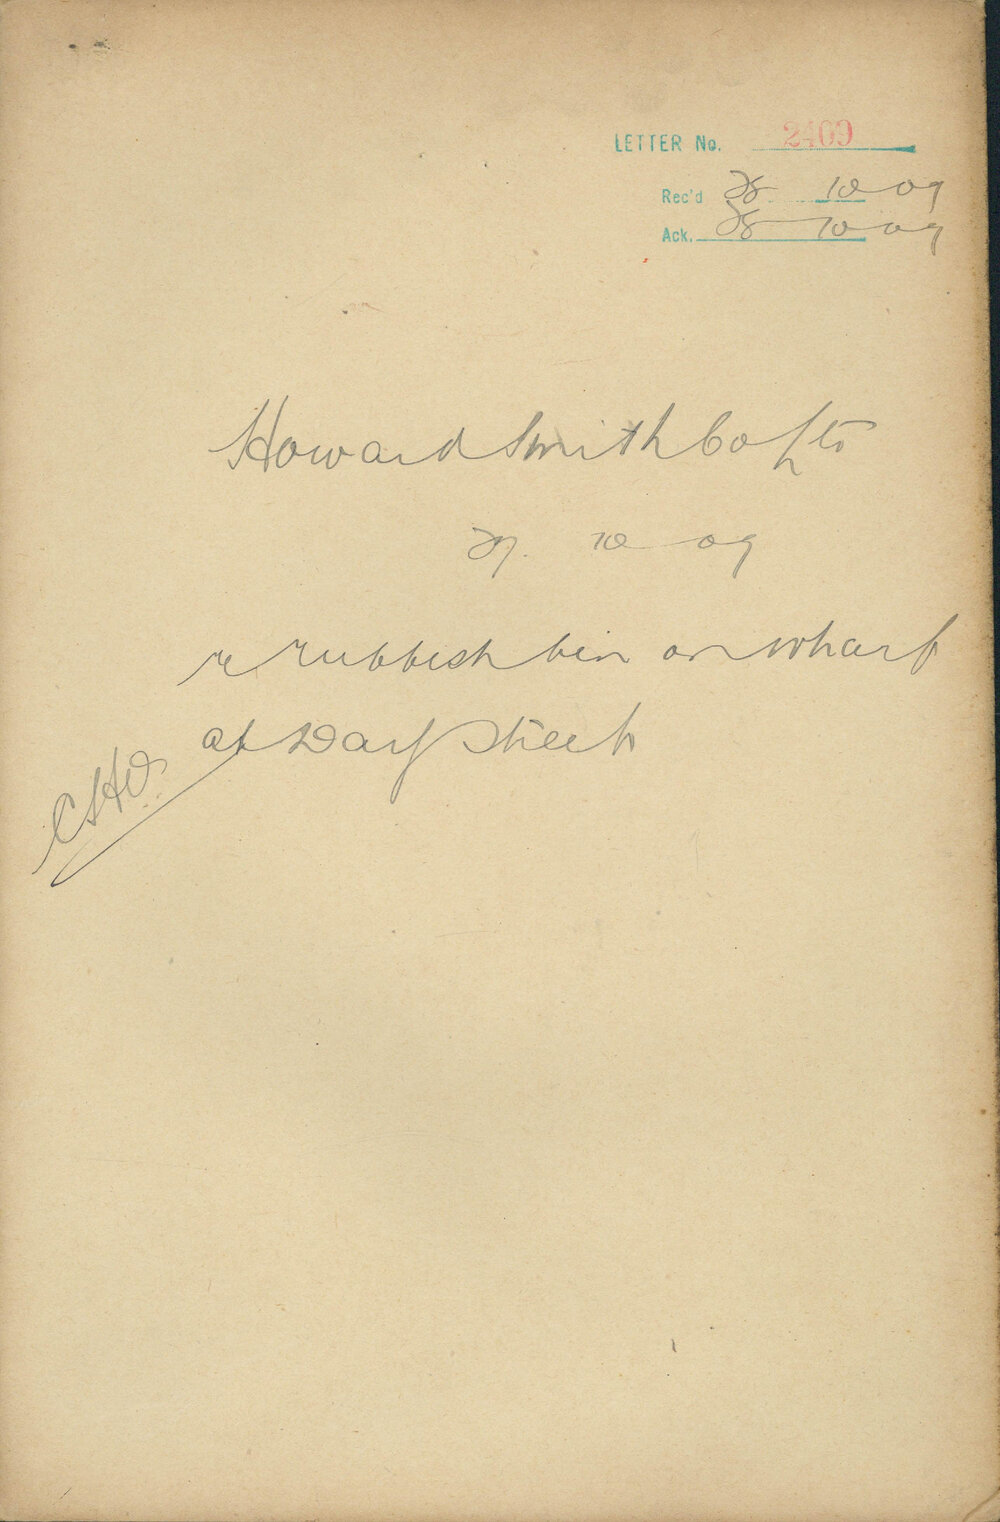 LETTER No. 2409
Rec'd 28 10 09
Ack. 28 10 09
Howard Smith Co Ltd
27. 10 09
re rubbish bin on wharf
at Day Street
CHO